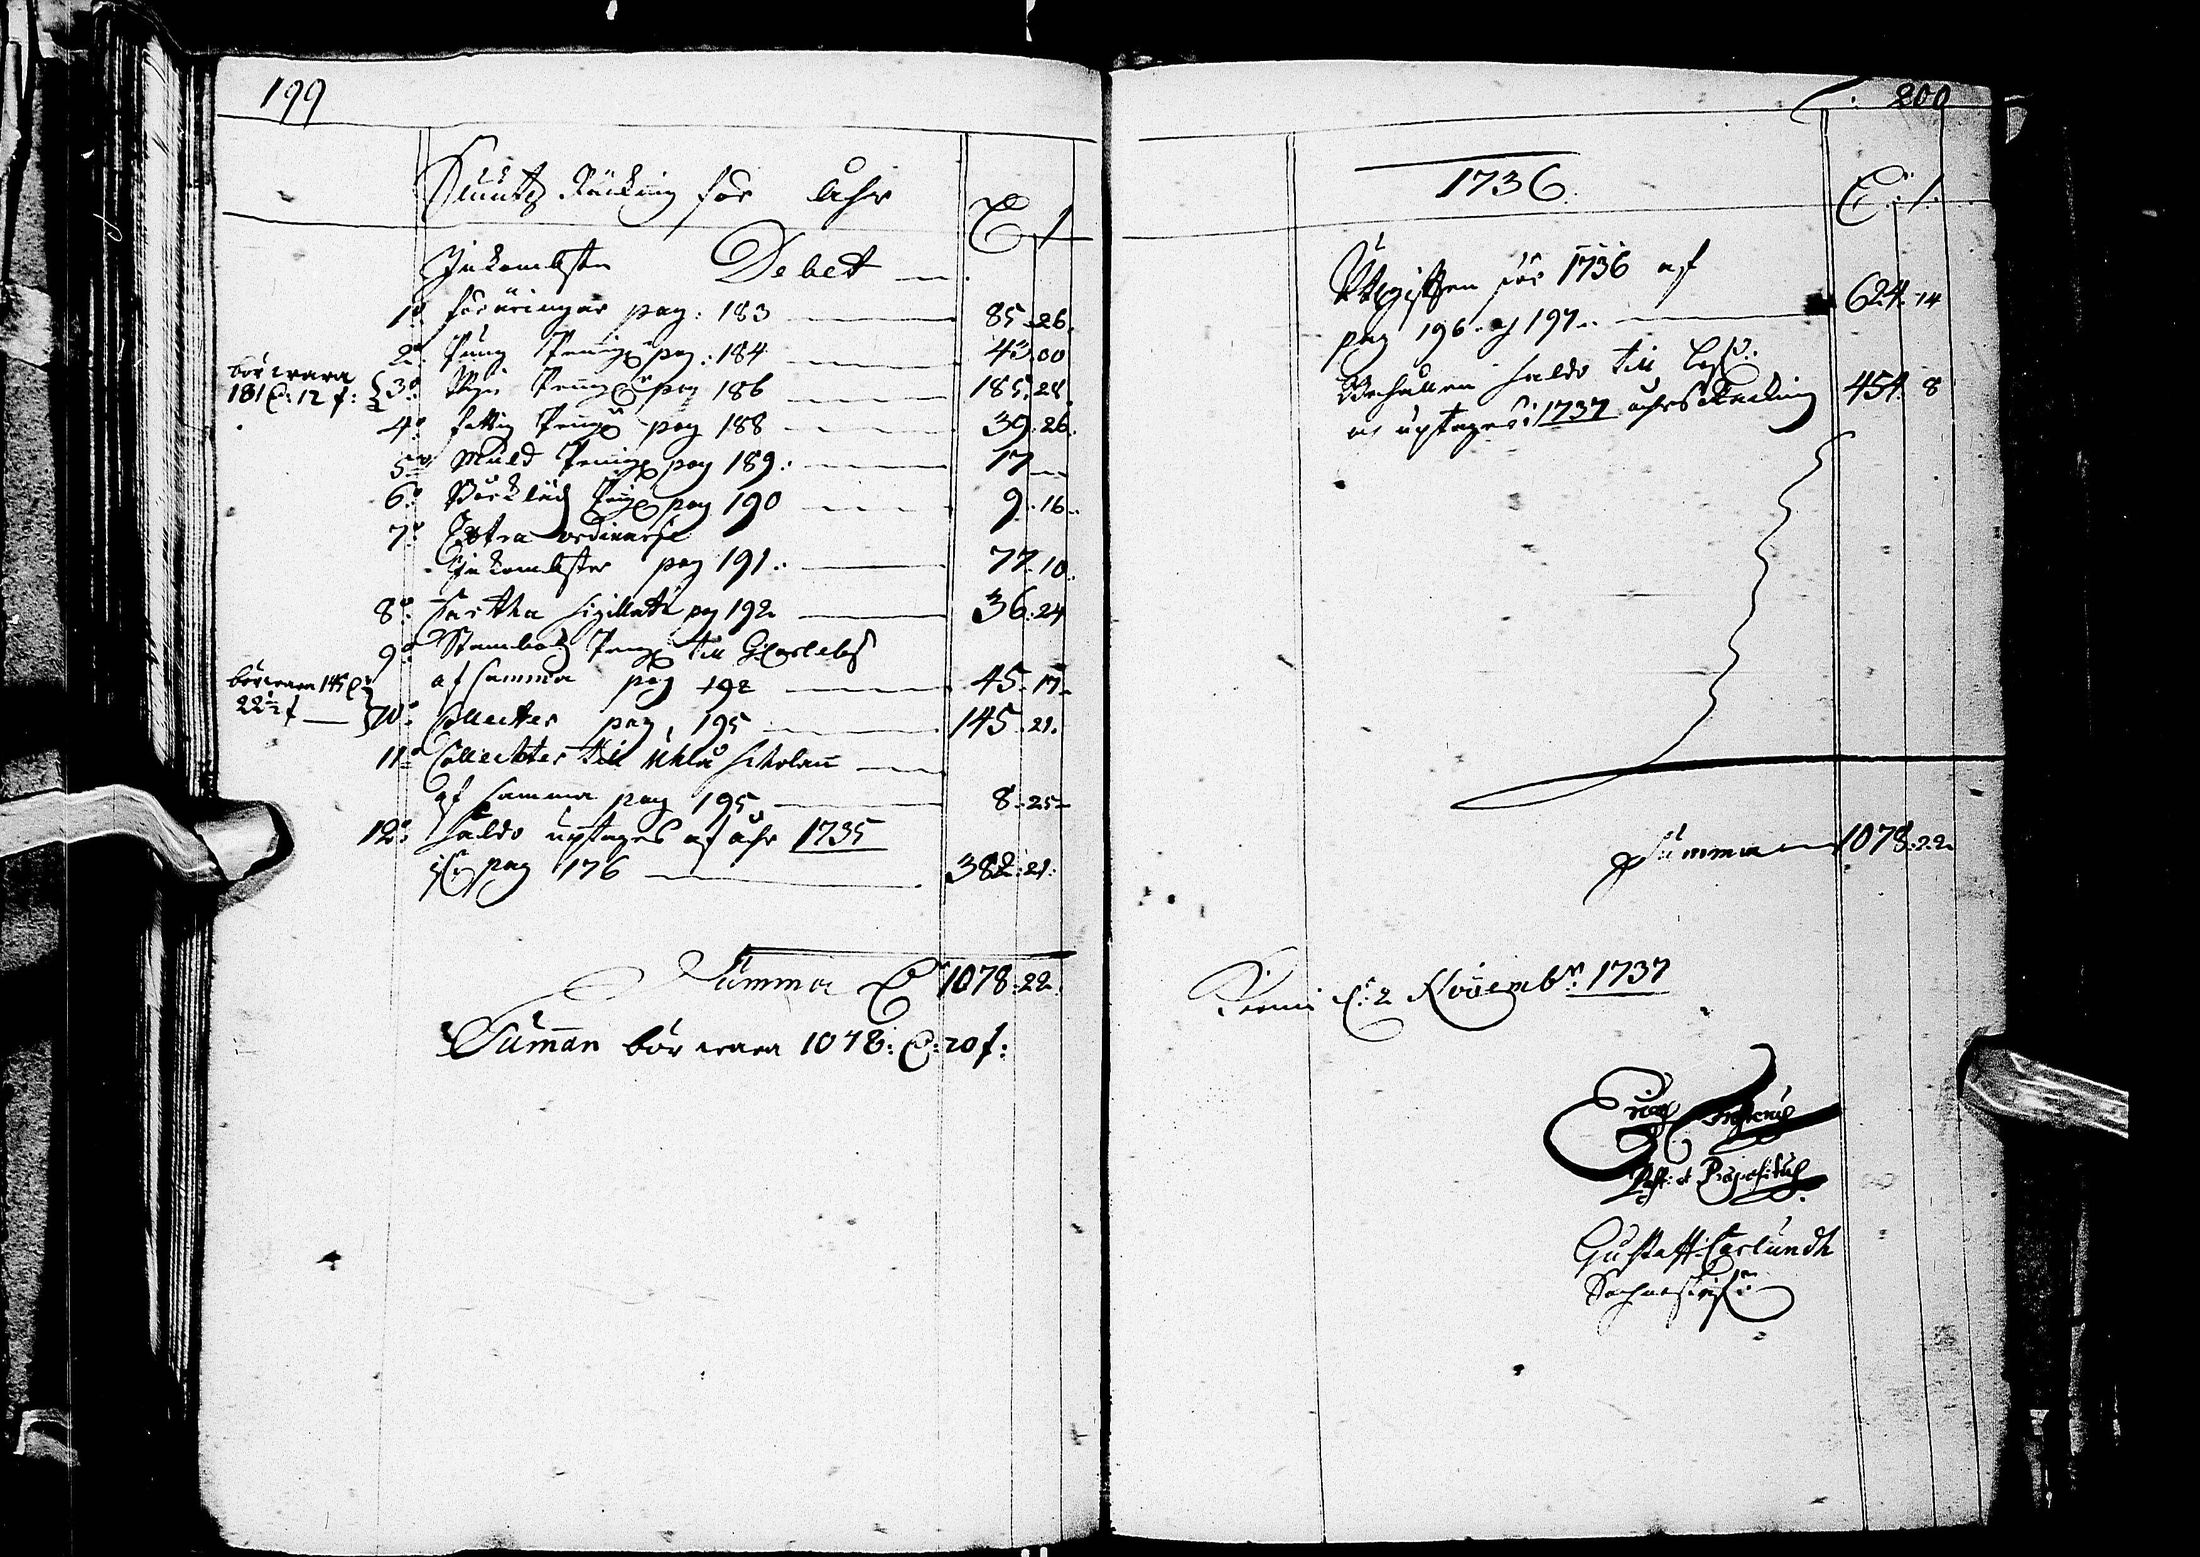 199
Räckning för Åhr
Inkombsten Debet
1o föräringar pag: 183 85. 26.
2o Pung Penng:r pag: 184 43. 00
bör wara
181 D: 12 f:
3o Penng:r pag 186 185. 28.
4o fattig Penng:r pag 188 39. 26.
5o Muld Penng:r pag 189. 17 —
6o Bårkläd Png:r pag 190 9. 16.
7o Extra ordinarie
Inkombster pag 191. 77. 10.
8o Chartha Sigillata pag 192 36. 24
9o Stamboks Peng:r till
af samma pag 192 45. 17.
bör wara 145 D:r
22½ f
10o Collecter pag. 195 145. 21.
11o Collechter till Uhlå Scholan
af samma pag 195 8. 25.
12o Saldo uptages af åhr 1735
pag 176 382. 21.
Summa D:r 1078. 22.
Summan bör wara 1078: D: 20 f:
200
1736.
Utgifften för 1736 af
pag 196 og 197. 624. 14
Behållen Saldo till
uptages i 1737 åhrs Räckning 454. 8
Summa 1078. 22.
Kiemi d: 2 Novemb:r 1737
Past: et Præpositus
Gustaff Carlundh